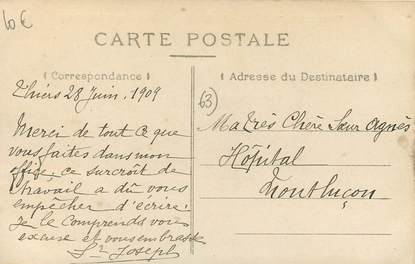 10 €
CARTE POSTALE
Correspondance
Adresse du Destinataire
Thiers 28 Juin. 1909
63
Merci de tout ce que
vous faites dans mon
office, ce surcroît de
travail a dû vous
empêcher d'écrire;
je le comprends vous
excuse et vous embrasse
Sr Joseph
Ma très Chère Sœur Agnès
Hôpital
Montluçon